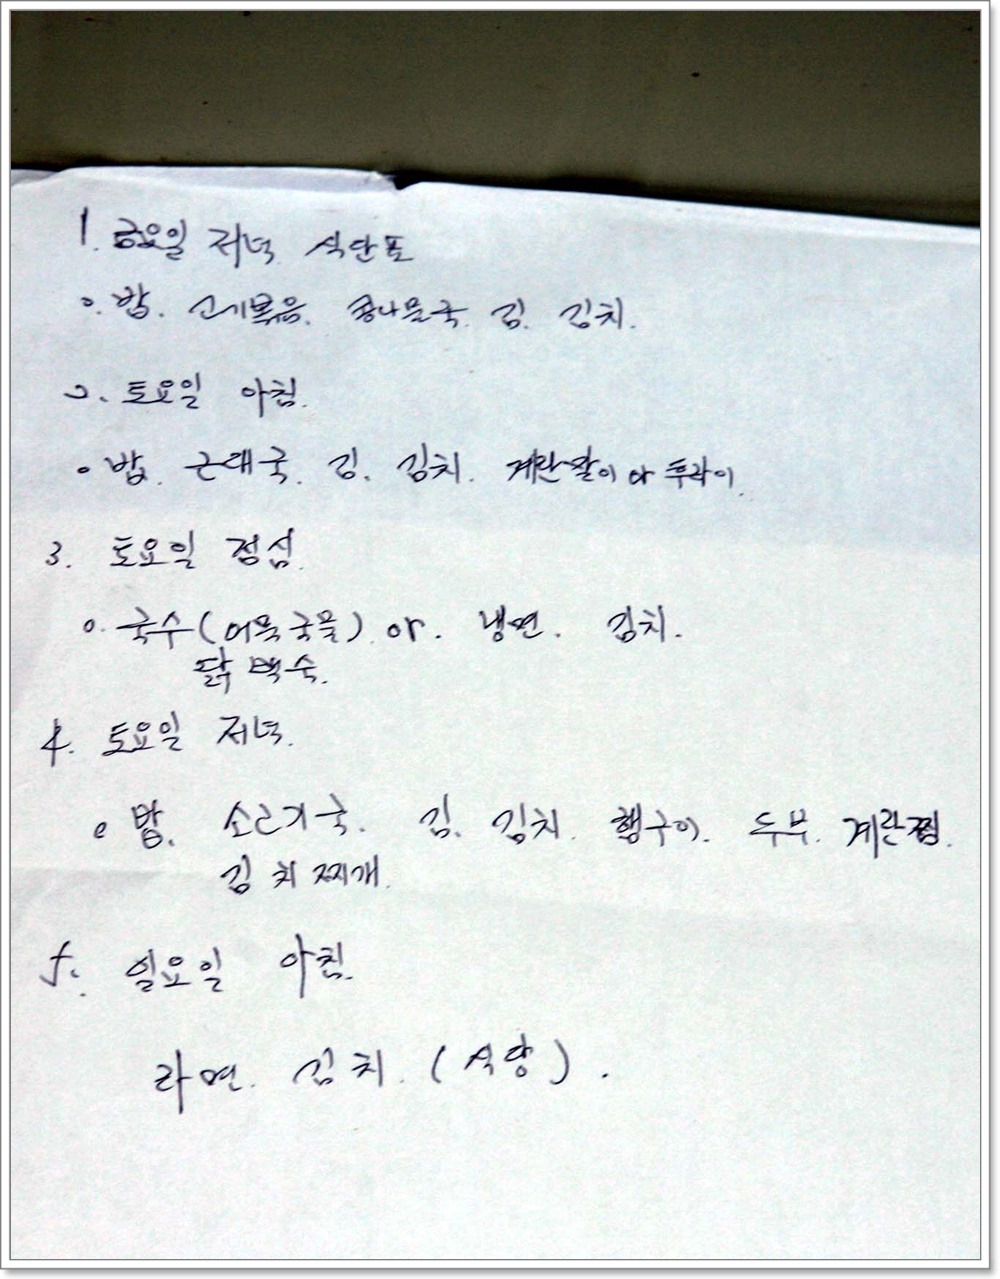 1. 금요일 저녁 식단표
o. 밥. 콩나물국. 김. 김치.
2. 토요일 아침.
o 밥. 근대국. 김. 김치. 계란말이 or 후라이.
3. 토요일 점심.
o. 국수(어묵국물) or. 냉면. 김치.
닭백숙.
4. 토요일 저녁.
o 밥. 김. 김치. 햄구이. 두부. 계란찜.
김치찌개.
5. 일요일 아침.
라면. 김치. (식당).